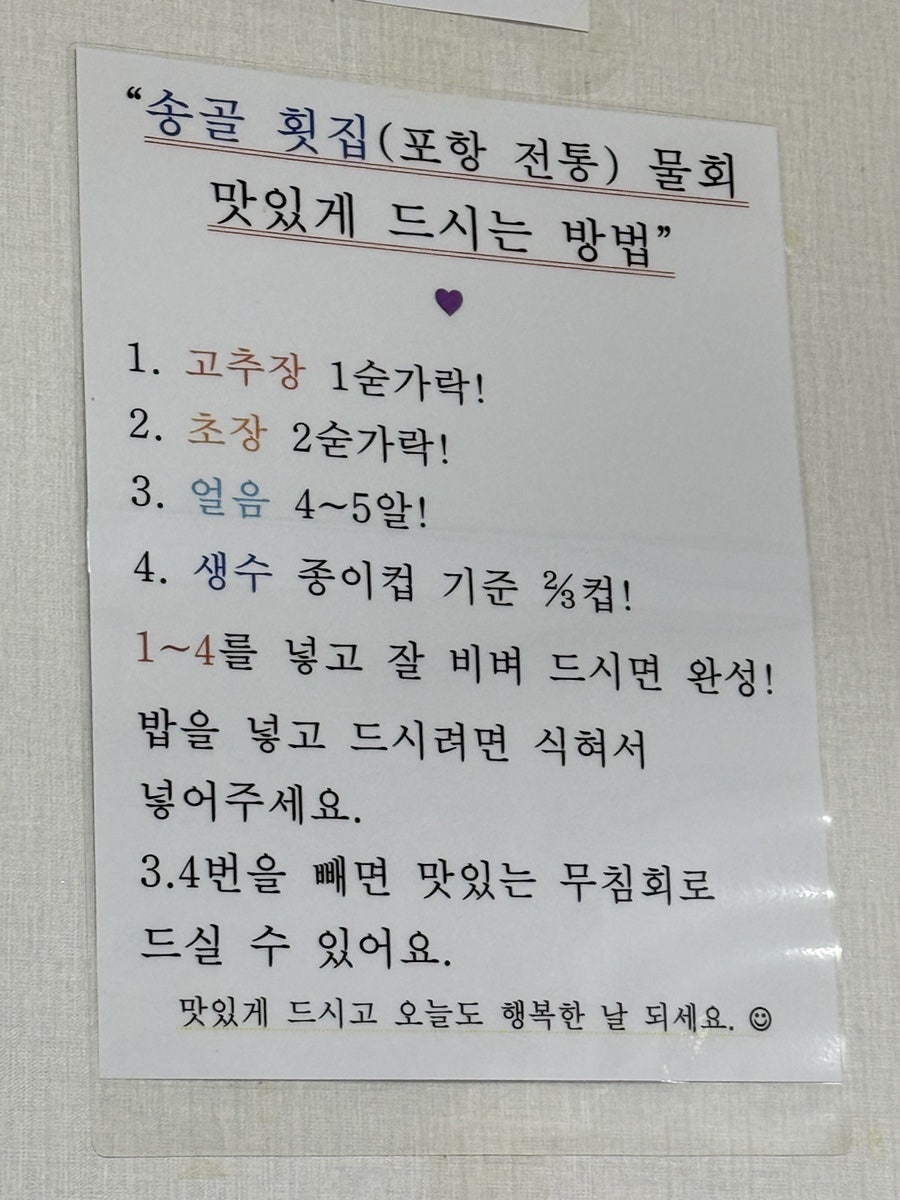 “송골 횟집(포항 전통) 물회
맛있게 드시는 방법”
1. 고추장 1숟가락!
2. 초장 2숟가락!
3. 얼음 4~5알!
4. 생수 종이컵 기준 ⅔컵!
1~4를 넣고 잘 비벼 드시면 완성!
밥을 넣고 드시려면 식혀서
넣어주세요.
3.4번을 빼면 맛있는 무침회로
드실 수 있어요.
맛있게 드시고 오늘도 행복한 날 되세요. ☺